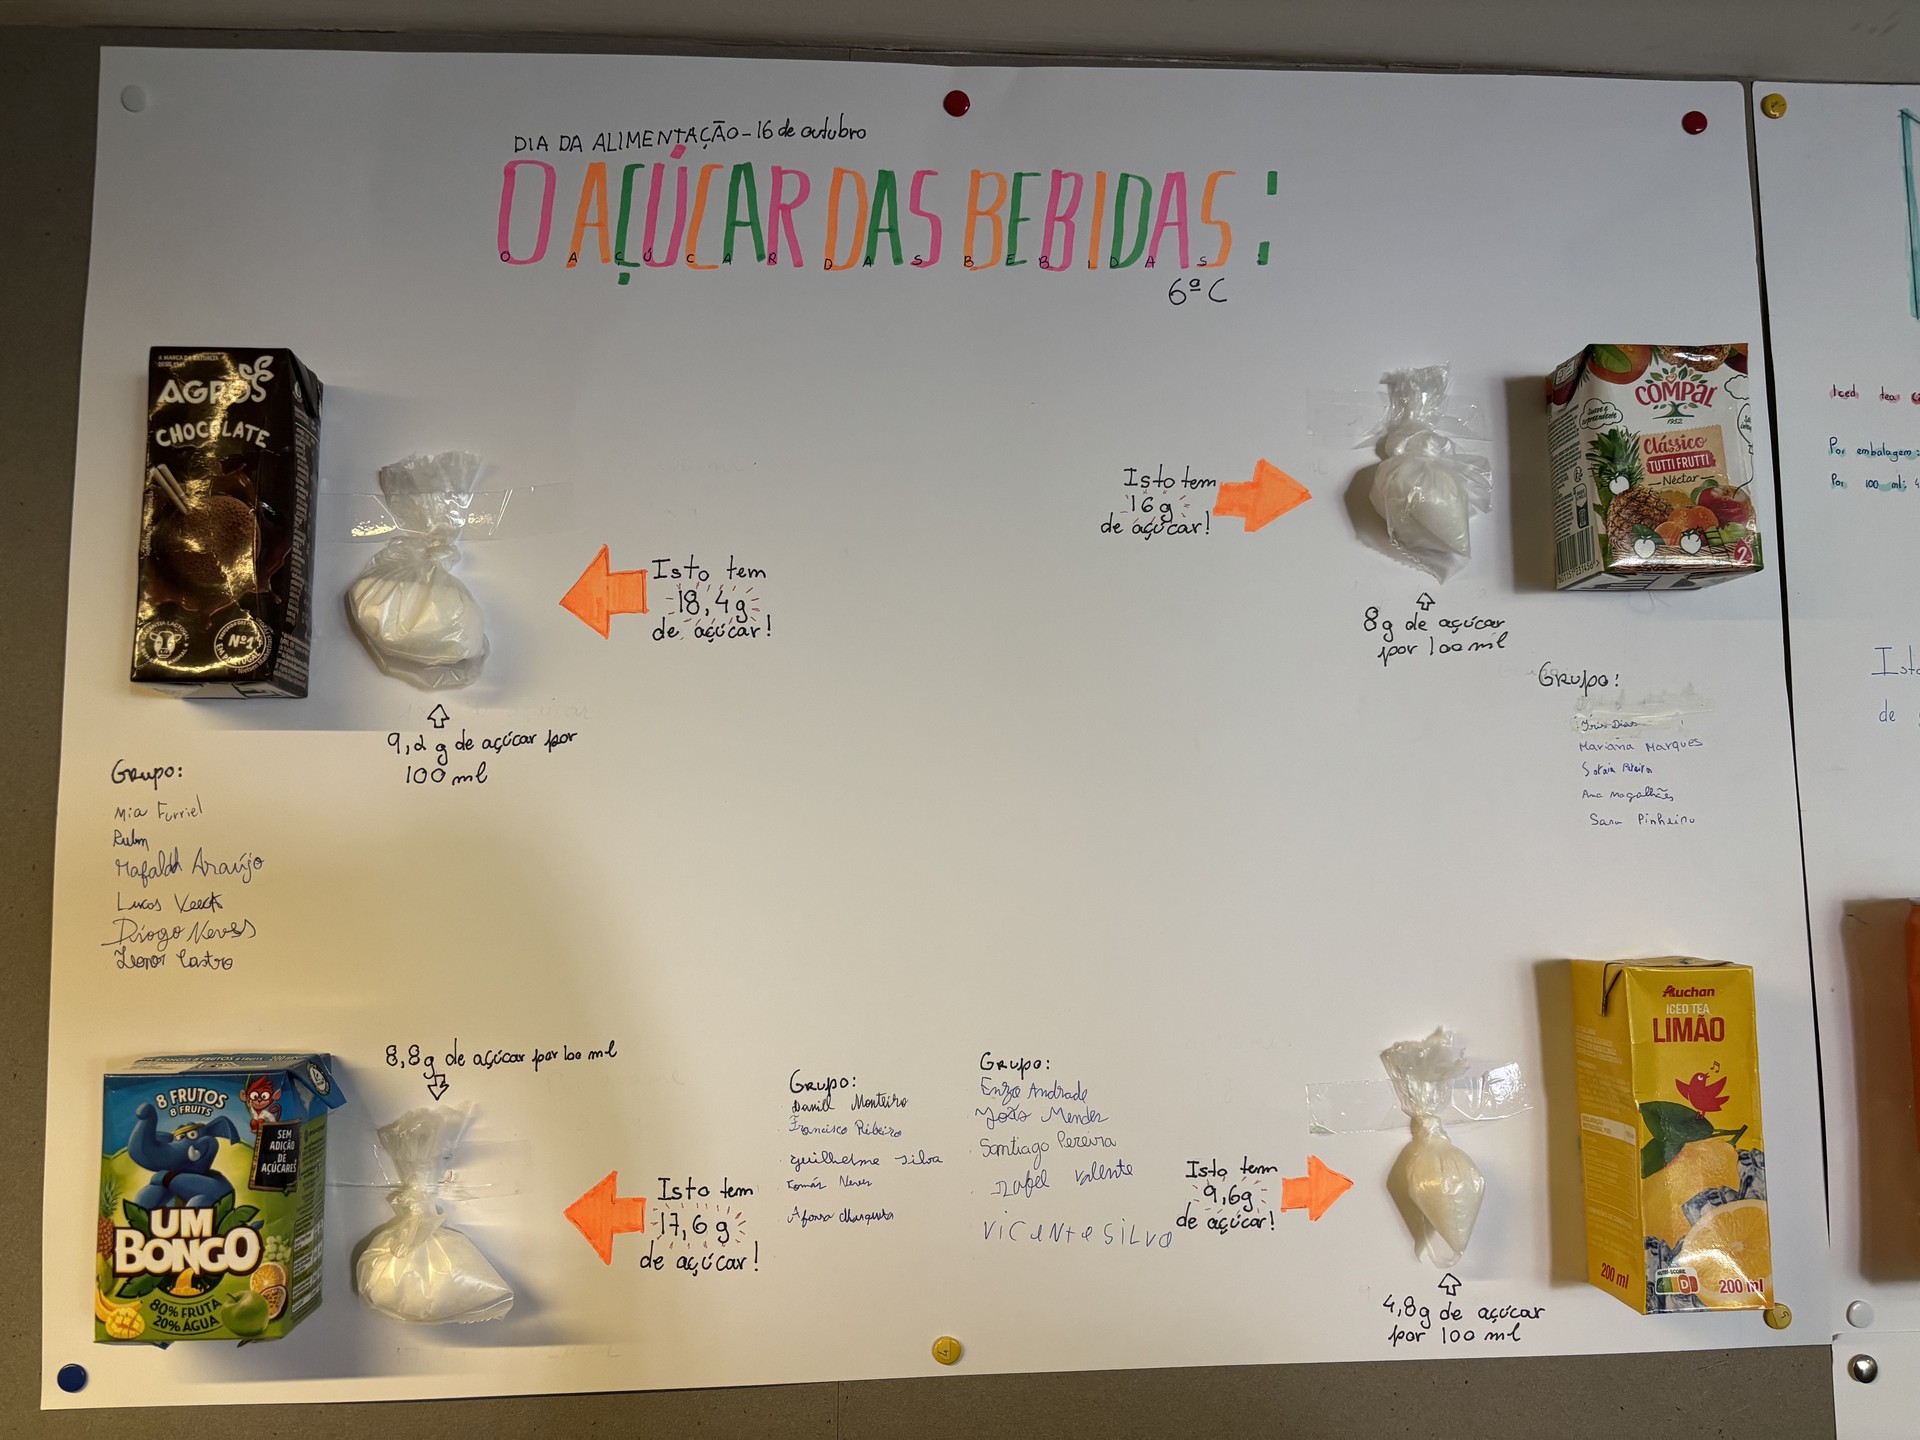 DIA DA ALIMENTAÇÃO - 16 de outubro
O AÇÚCAR DAS BEBIDAS :
O AÇÚCAR DAS BEBIDAS :
6ª C
AGROS
CHOCOLATE
Nº1
Isto tem
18,4g
de açúcar!
9,2 g de açúcar por
100 ml
Grupo:
Mia Furriel
Mafalda Araújo
Lucas
Diogo Neves
Leonor Castro
Isto tem
16 g
de açúcar!
8g de açúcar
por 100 ml
COMPAL
1952
Clássico
TUTTI FRUTTI
Néctar
Grupo:
Íris Dias
Mariana Marques
Ana Magalhães
Sara Pinheiro
8 FRUTOS
8 FRUITS
SEM
ADIÇÃO
DE
AÇÚCARES
UM
BONGO
80% FRUTA
20% ÁGUA
8,8g de açúcar por 100 ml
Isto tem
17,6 g
de açúcar!
Grupo:
Daniel Monteiro
Francisco Ribeiro
Guilherme Silva
Tomás Neves
Afonso
Grupo:
Enzo Andrade
João Mendes
Santiago Pereira
Rafael Valente
Vicente Silva
Isto tem
9,6g
de açúcar!
4,8g de açúcar
por 100 ml
Auchan
ICED TEA
LIMÃO
200 ml
NUTRI-SCORE
D
200 ml
Iced tea
Por embalagem:
Por 100 ml: 4
Isto
de